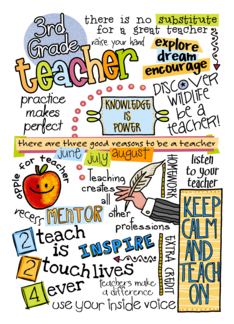 3rd
Grade
teacher
there is no substitute
for a great teacher
raise your hand
explore
dream
encourage
practice
makes
perfect
KNOWLEDGE
IS
POWER
DISCOVER
WILDLIFE
be a
teacher!
there are three good reasons to be a teacher
june july august
apple for teacher
Teaching
creates
all
other
professions
HOMEWORK
listen
to your
teacher
recess
MENTOR
2 teach
is
INSPIRE
2 touch lives
4 ever
EXTRA CREDIT
teachers make
a difference
use your inside voice
KEEP
CALM
AND
TEACH
ON